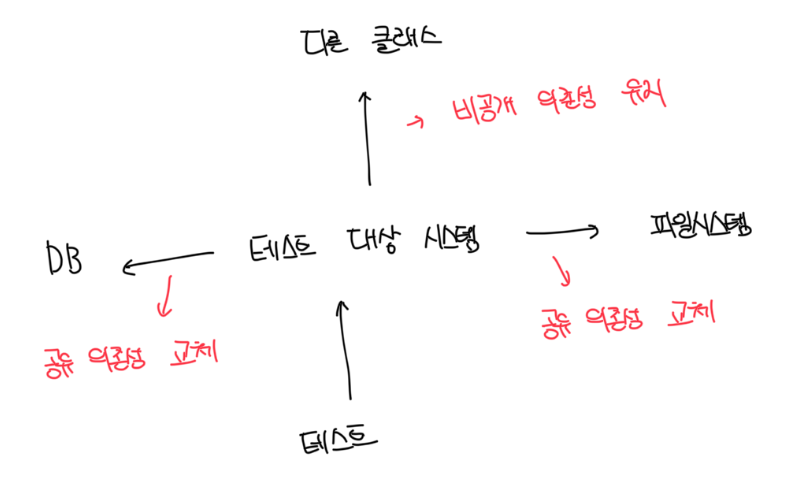 다른 클래스
→ 비공개 의존성 유지
DB
테스트 대상 시스템
파일시스템
공유 의존성 교체
공유 의존성 교체
테스트